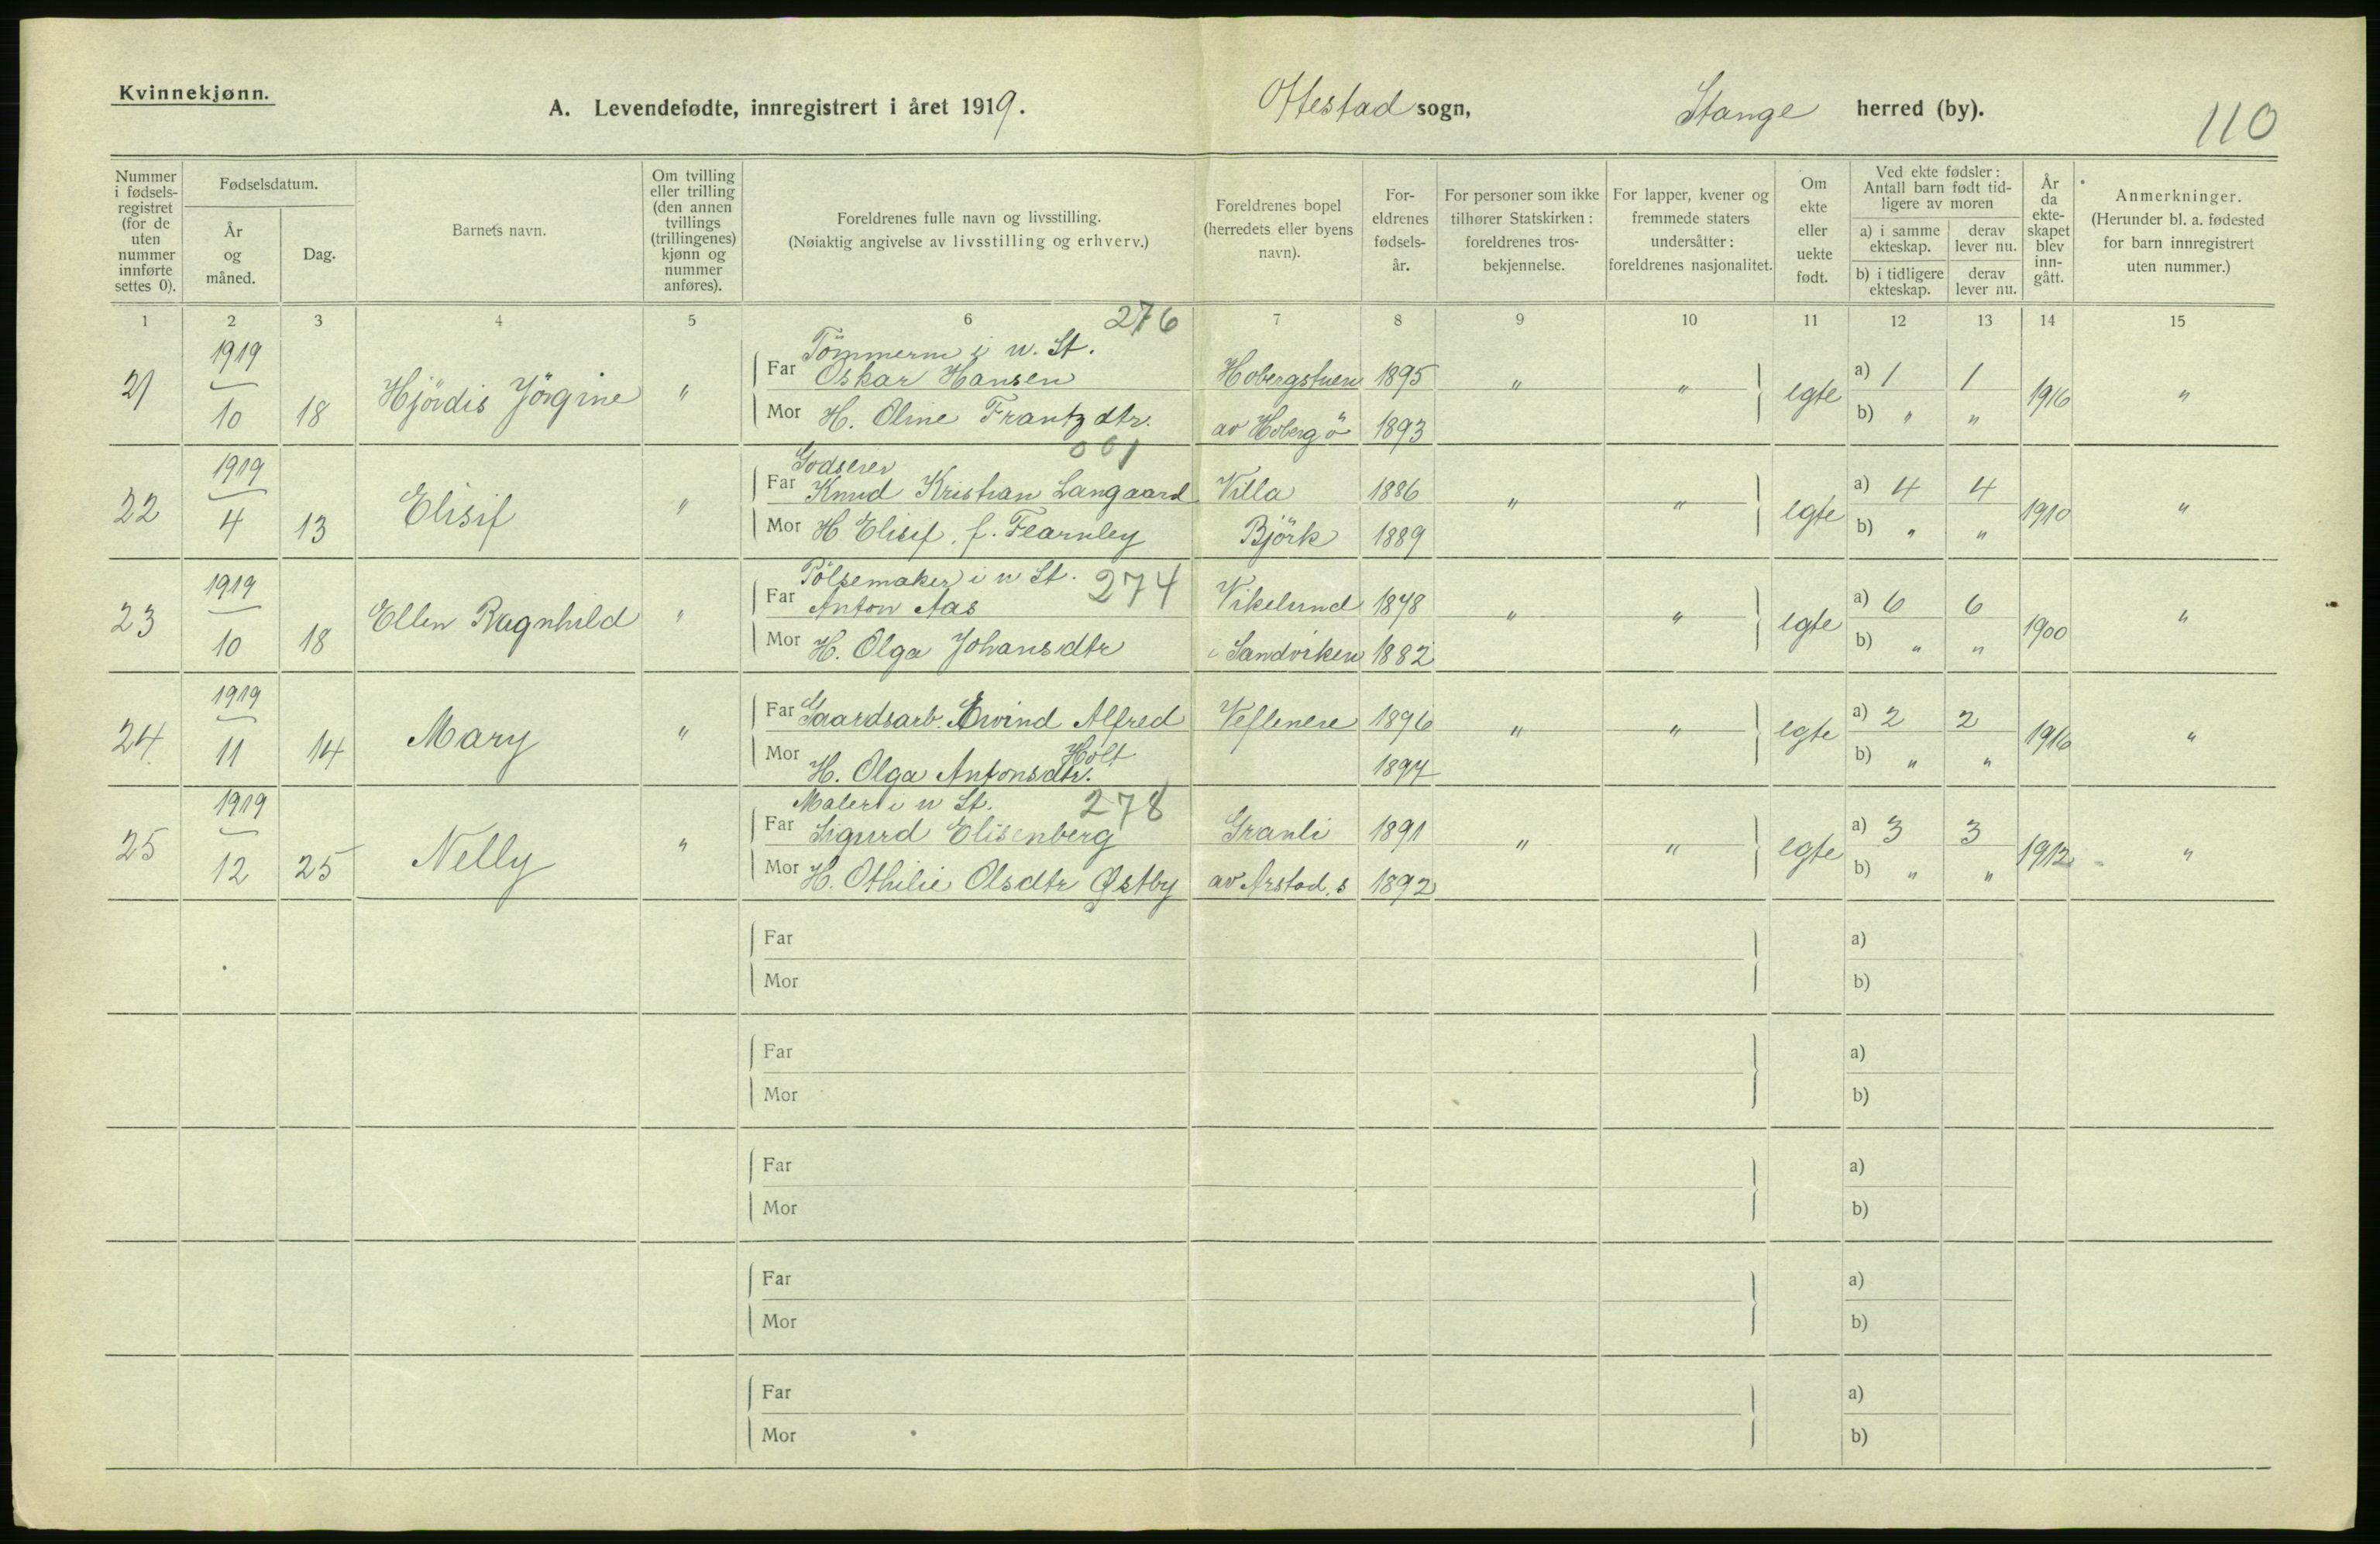 Kvinnekjønn.
A. Levendefødte, innregistrert i året 1919. Ottestad sogn, Stange herred (by). 110
Nummer i fødsels-registret (for de uten nummer innførte settes 0).
Fødselsdatum.
År og måned.
Dag.
Barnets navn.
Om tvilling eller trilling (den annen tvillings (trillingenes) kjønn og nummer anføres).
Foreldrenes fulle navn og livsstilling.
(Nøiaktig angivelse av livsstilling og erhverv.)
Foreldrenes bopel (herredets eller byens navn).
For-eldrenes fødsels-år.
For personer som ikke tilhører Statskirken: foreldrenes tros-bekjennelse.
For lapper, kvener og fremmede staters undersåtter: foreldrenes nasjonalitet.
Om ekte eller uekte født.
Ved ekte fødsler: Antall barn født tid-ligere av moren
a) i samme ekteskap. derav lever nu.
b) i tidligere ekteskap. derav lever nu.
År da ekte-skapet blev inn-gått.
Anmerkninger. (Herunder bl. a. fødested for barn innregistrert uten nummer.)
1 2 3 4 5 6 7 8 9 10 11 12 13 14 15
276
1919 Tömmerm i u. St.
21 10 18 Hjördis Jörgine " Far Oskar Hansen Hobergstuen 1895 " " egte a) 1 1 1916 "
Mor H. Oline Frantzdtr. av Hoberg ö 1893 b) " "
061
1919 Godseier
22 4 13 Elisif " Far Knud Kristian Langaard Villa 1886 " " egte a) 4 4 1910 "
Mor H. Elisif, f. Fearnley Björk 1889 b) " "
1919 Pölsemaker i u St. 274
23 10 18 Ellen Ragnhild " Far Anton Aas Vikelund 1878 " " egte a) 6 6 1900 "
Mor H. Olga Johansdtr i Sandviken 1882 b) " "
1919
24 11 14 Mary " Far Gaardsarb. Eivind Alfred Holt 1896 " " egte a) 2 2 1916 "
Mor H. Olga Antonsdtr. 1894 b) " "
1919 Maler i u St. 278
25 12 25 Nelly " Far Sigurd Elisenberg Granli 1891 " " egte a) 3 3 1912 "
Mor H. Othilie Olsdtr Østby av Arstad, s 1892 b) " "
Far a)
Mor b)
Far a)
Mor b)
Far a)
Mor b)
Far a)
Mor b)
Far a)
Mor b)